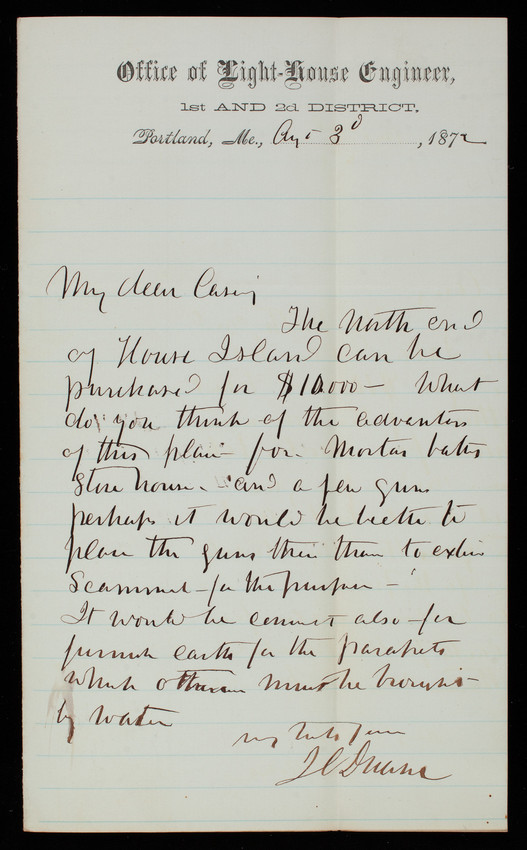 Office of Light-House Engineer,
1st AND 2d DISTRICT,
Portland, Me., Aug 3d, 1872
My dear Casey
The North end
of House Island can be
purchased for $10000 - What
do you think of the advantages
of this place for Mortar batts
Store house - and a few guns
perhaps it would be better to
place the guns there than to extend
Scammel - for the purpose -
It would be convenient also - for
furnish earth for the parapets
which otherwise must be brought
by water
Very truly yours
J C Duane